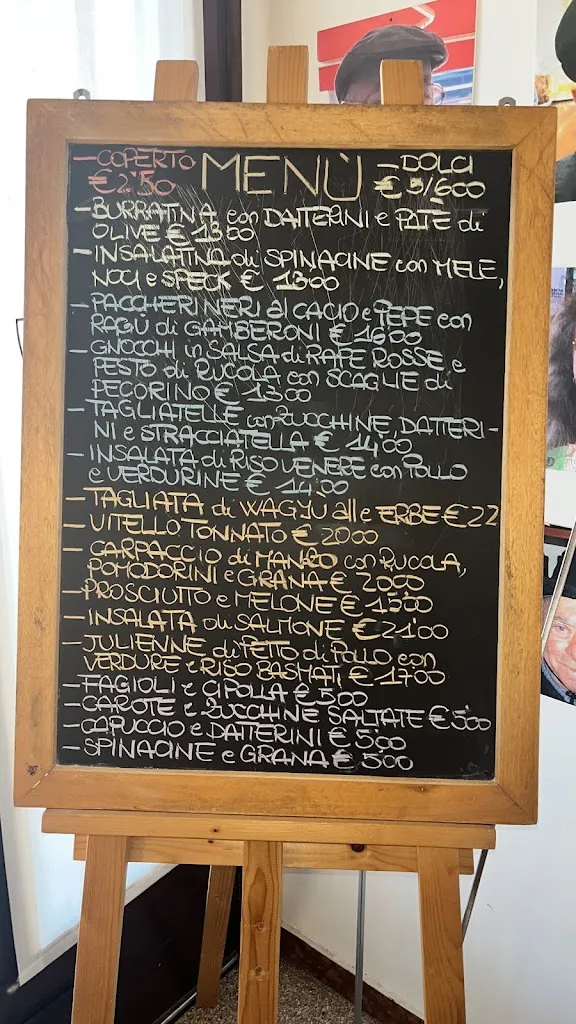 -COPERTO
€2'50
MENÙ
-DOLCI
€5/600
-BURRATINA con DATTERINI e PATÈ di
OLIVE € 1300
-INSALATINA di SPINACINE con MELE,
NOCI e SPECK € 1300
-PACCHERI NERI al CACIO e PEPE con
RAGÙ di GAMBERONI € 1600
-GNOCCHI in SALSA di RAPE ROSSE e
PESTO di RUCOLA con SCAGLIE di
PECORINO € 1300
-TAGLIATELLE con ZUCCHINE, DATTERI-
NI e STRACCIATELLA € 14'00
-INSALATA di RISO VENERE con POLLO
e VERDURINE € 14'00
-TAGLIATA di WAGYÙ alle ERBE € 22
-VITELLO TONNATO € 2000
-CARPACCIO di MANZO con RUCOLA,
POMODORINI e GRANA € 2000
-PROSCIUTTO e MELONE € 1500
-INSALATA di SALMONE € 21'00
-JULIENNE di PETTO di POLLO con
VERDURE e RISO BASMATI € 1700
-FAGIOLI e CIPOLLA € 500
-CAROTE e ZUCCHINE SALTATE € 500
-CAPUCCIO e DATTERINI € 500
-SPINACINE e GRANA € 500